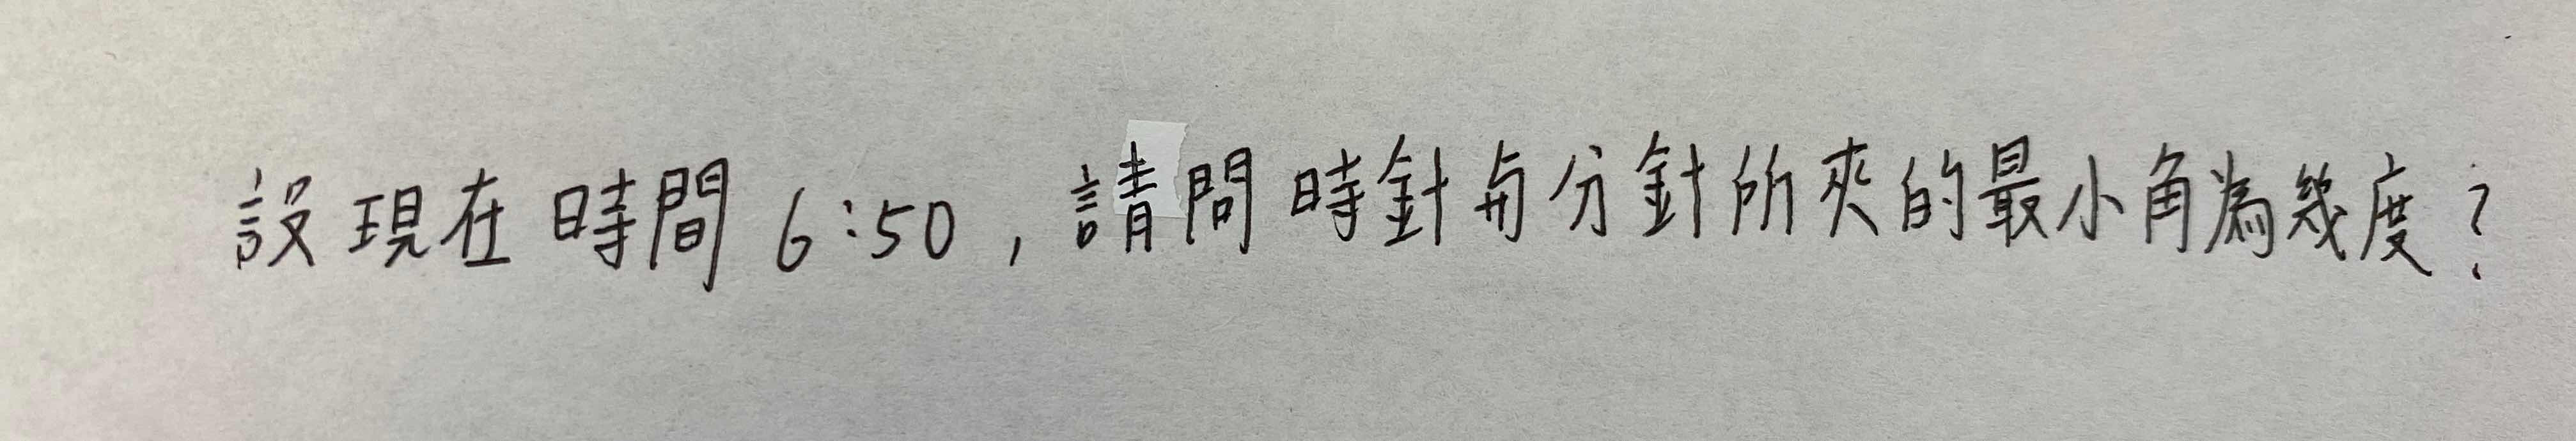 設現在時間 6:50，請問時針与分針所夾的最小角為幾度？